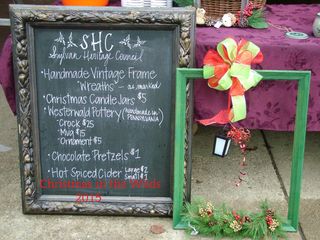 SHC
Sylvan Heritage Council
• Handmade Vintage Frame
"Wreaths" - as marked
• Christmas Candle Jars $5
• Westerwald Pottery (Handmade in
PENNSYLVANIA
• Crock $25
• Mug $15
• Ornament $5
• Chocolate Pretzels $1
• Hot Spiced Cider Large $2
Small $1
Christmas at the Winds
2015